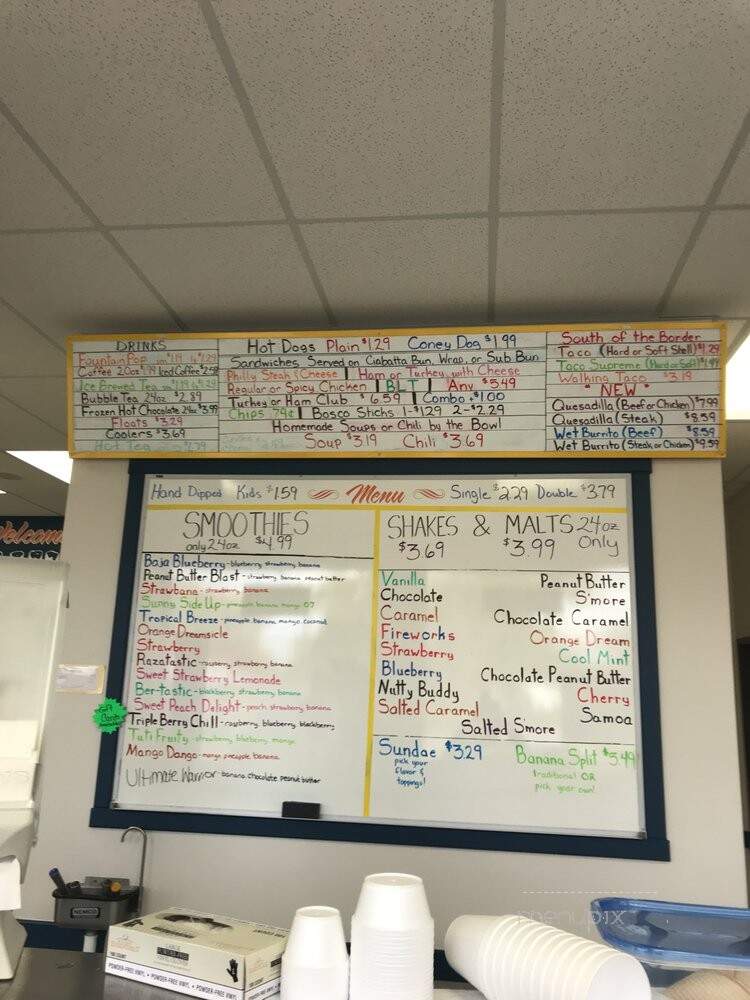 DRINKS
Fountain Pop sm $1.19 lg $1.29
Coffee 20oz $1.19 Iced Coffee $2.58
Ice Brewed Tea sm $1.19 lg $1.29
Bubble Tea 24oz $2.89
Frozen Hot Chocolate 24oz $3.99
Floats $3.29
Coolers $3.69
Hot Tea
Hot Dogs Plain $1.29 Coney Dog $1.99
Sandwiches Served on Ciabatta Bun, Wrap, or Sub Bun
Philly Steak & Cheese | Ham or Turkey with Cheese
Regular or Spicy Chicken | BLT | Any $5.49
Turkey or Ham Club $6.59 | Combo +$1.00
Chips .79¢ | Bosco Sticks 1-$1.29 2-$2.29
Homemade Soups or Chili by the Bowl
Soup $3.19 Chili $3.69
South of the Border
Taco (Hard or Soft Shell) $1.29
Taco Supreme (Hard or Soft) $1.99
Walking Taco $3.19
NEW
Quesadilla (Beef or Chicken) $7.99
Quesadilla (Steak) $8.59
Wet Burrito (Beef) $8.59
Wet Burrito (Steak or Chicken) $9.59
Hand Dipped Kids $1.59 Menu Single $2.29 Double $3.79
SMOOTHIES
only 24oz $4.99
Baja Blueberry - blueberry strawberry banana
Peanut Butter Blast - strawberry banana peanut butter
Strawbana - strawberry banana
Sunny Side Up - pineapple banana mango OJ
Tropical Breeze - pineapple banana mango coconut
Orange Dreamsicle
Strawberry
Razatastic - raspberry strawberry banana
Sweet Strawberry Lemonade
Ber-tastic - blackberry strawberry banana
Sweet Peach Delight - peach strawberry banana
Triple Berry Chill - raspberry, blueberry, blackberry
Tuti Fruity - strawberry blueberry mango
Mango Dango - mango pineapple banana
Ultimate Warrior - banana chocolate peanut butter
SHAKES & MALTS 24oz
$3.69 $3.99 Only
Vanilla
Chocolate
Caramel
Fireworks
Strawberry
Blueberry
Nutty Buddy
Salted Caramel
Peanut Butter
S'more
Chocolate Caramel
Orange Dream
Cool Mint
Chocolate Peanut Butter
Cherry
Samoa
Salted S'more
Sundae $3.29
pick your
flavor &
toppings!
Banana Split $5.49
traditional OR
pick your own!
Welcome
Gift
Cards
NEMCO
POWDER-FREE
100 COUNT
POWDER-FREE VINYL • POWDER-FREE VINYL • POWDER-FREE VINYL
menupix